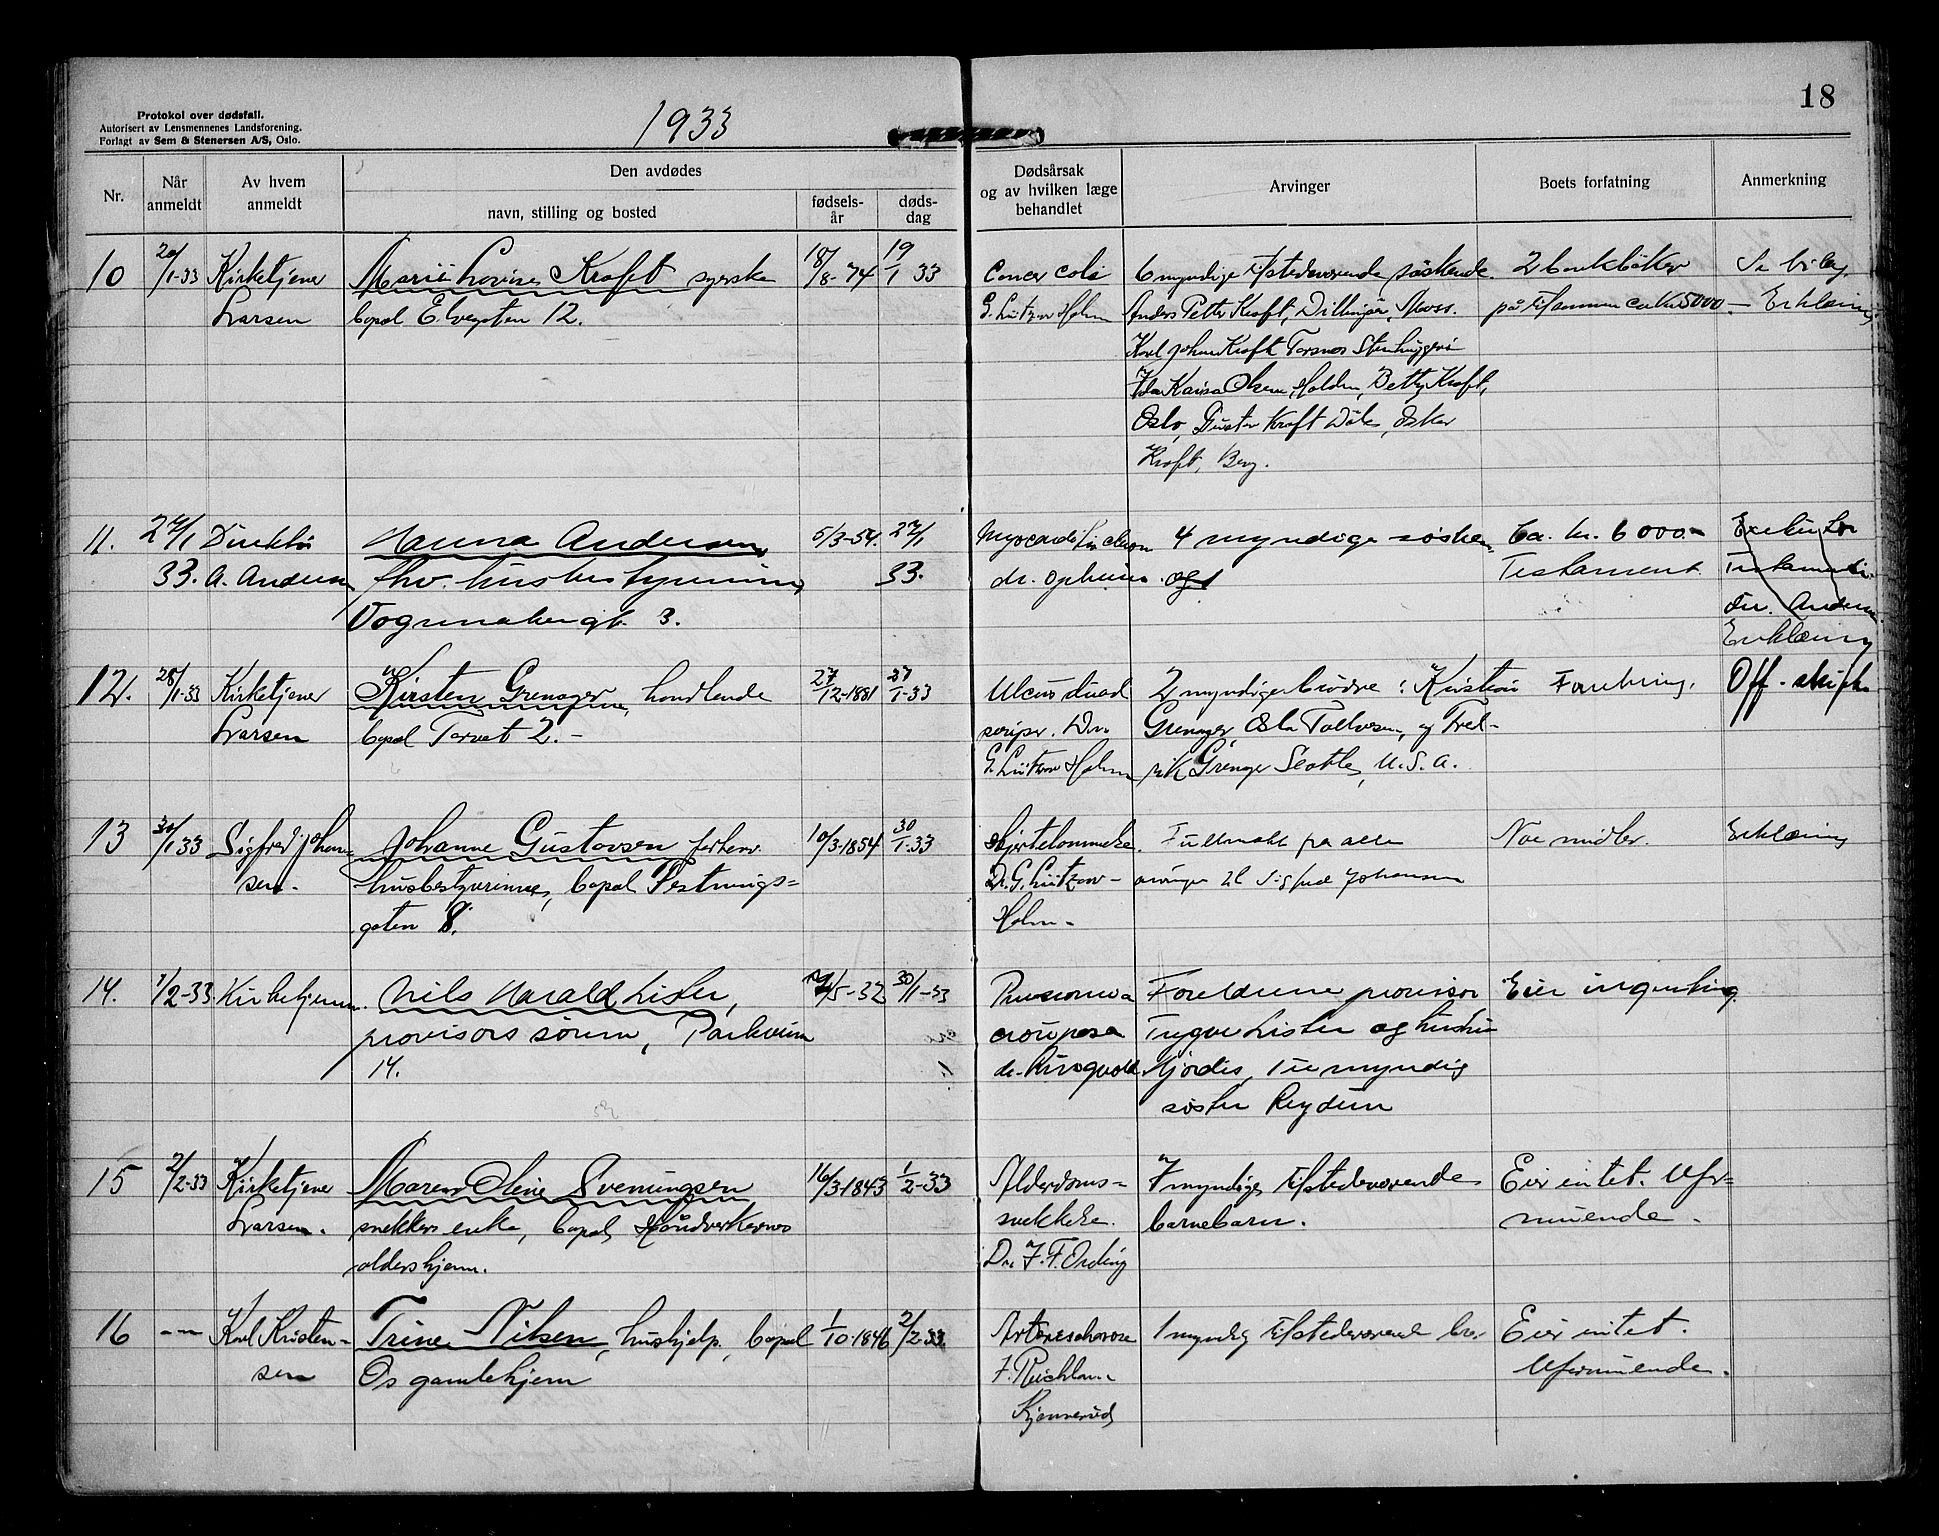 Protokol over dødsfall.
Autorisert av Lensmennenes Landsforening.
Forlagt av Sem & Stenersen A/S, Oslo.
1933
18
Nr.
Når anmeldt
Av hvem anmeldt
Den avdødes
navn, stilling og bosted
fødselsår
dødsdag
Dødsårsak og av hvilken læge behandlet
Arvinger
Boets forfatning
Anmerkning
10 20/1-33 Kirketjener Marie Lovise Kraft syerske 18/8-74 19/1 33 Cancer coli 6 myndige tilstedeværende søskende 2 bankbøker Se bilag
Larsen bopel Elvegaten 12. G. Lützow Holm Anders Petter Kraft, Dillingør, Moss. på tilsammen ca kr 5000.— Erklæring
Karl Johan Kraft Torsnes Stenhuggeri
Kaisa Olsen, Halden, Betty Kraft,
Oslo, Gustav Kraft, Oskar
Kraft, Berg.
11. 27/1 Direktør Hanna Andersen 5/3-54. 27/1 4 myndige søsken Ca. kr. 6000.-
33. A. Andersen fhv. husbestyrerinne 33. dr. og Testament.
Vognmakergt. 3. Erklæring
12. 28/1-33 Kirketjener Kirsten Grenager, handlende 27/12-1881 27/1-33 Ulcus duod 2 myndige brødre: Kristian Forretning. Off. skifte
Larsen bopel Torvet 2.- Dr. Grenager Oslo og Fred-
G. Lützow Holm rik Grenager Seattle, U.S.A.
13 30/1 33 Sigfred Johan- Johanne Gustavsen forhenv. 10/3-1854 30/1-33 Hjertelammelse. Fullmakt fra alle Noe midler. Erklæring
sen. husbestyrerinne, bopel Festnings- Dr. G. Lützow- arvinger til Sigfred Johansen
gaten 8. Holm-
14. 1/2-33 Kirketjeneren. Nils Harald Lister, 5-32 30/1-33 Pneumonia Foreldrene provisor Eier ingenting
provisors sønn, Parkveien crouposa Trygve Lister og hustru
14. dr. Ringvold Hjørdis, umyndig
søster Reydun
15 2/2-33 Kirketjener Maren Oline Sveningsen 16/3-1843 1/2-33 Alderdoms- 7 myndige tilstedeværende Eier intet. Ufor-
Larsen. snekkers enke, bopel Håndverkernes svekkelse. barnebarn. muende.
aldershjem. Dr. J. F. Ording
16 -„- Karl Kristen- Trine Nilsen, hushjelp, bopel 1/10-1846 2/2-33. 1 myndig tilstedeværende Eier intet.
sen Os gamlehjem Uformuende.
Kjennerud